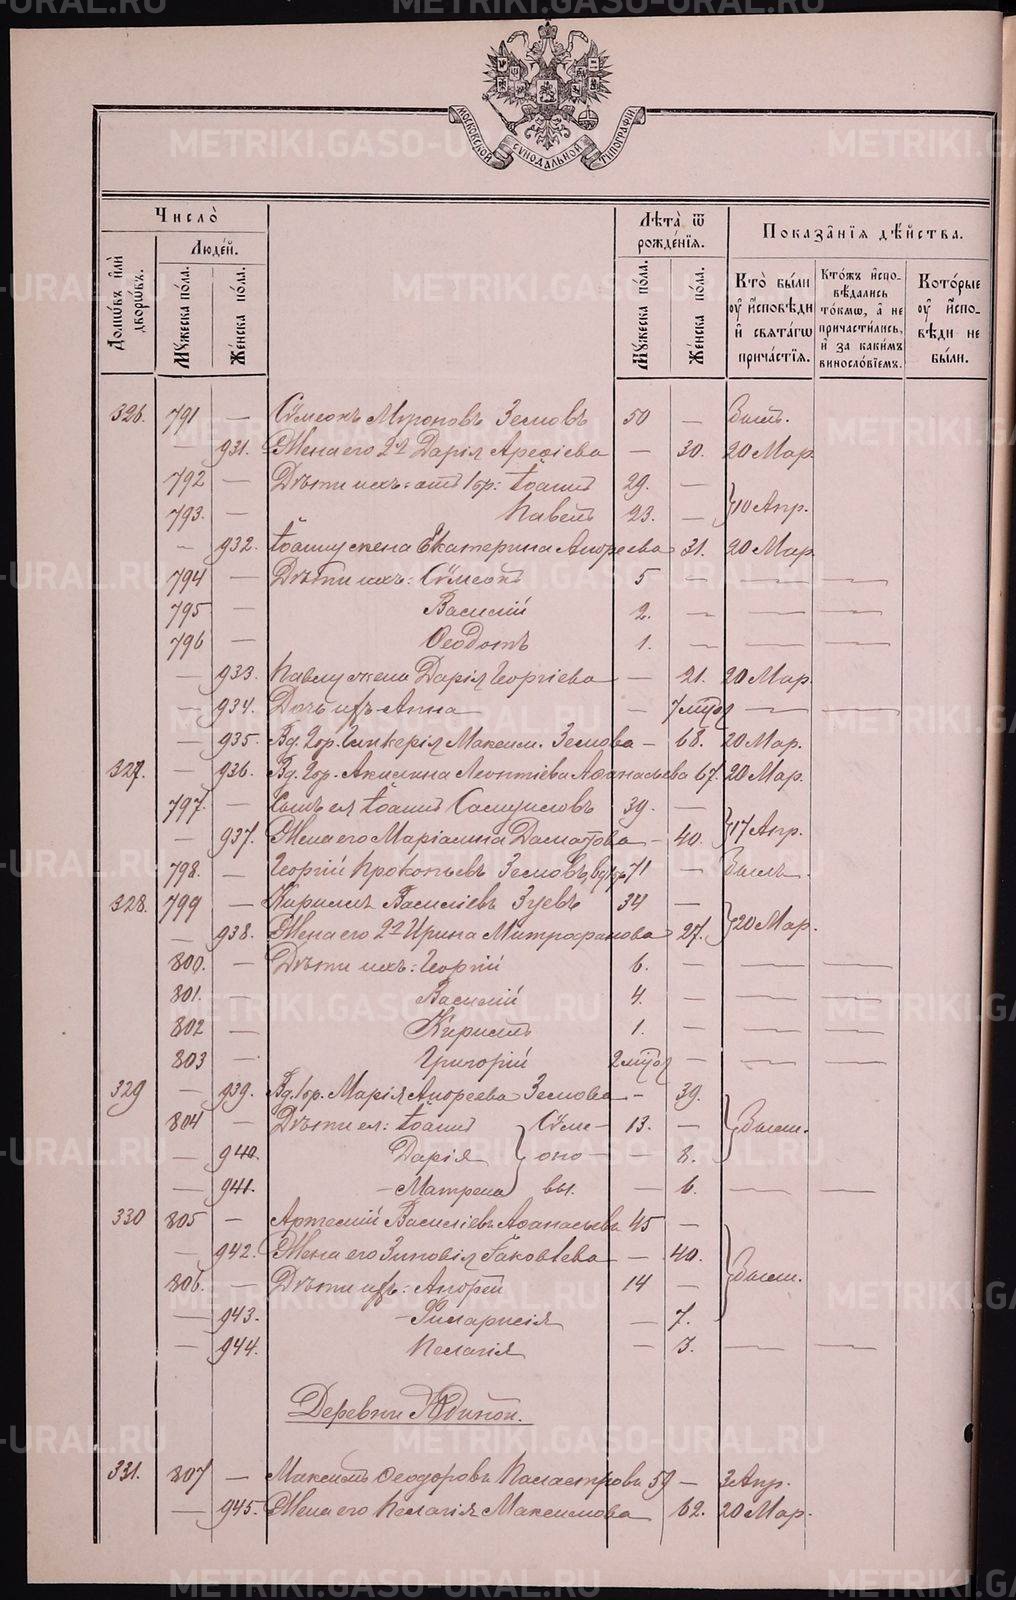 МОСКОВСКОЙ СѴНОДАЛЬНОЙ ТИПОГРАФІИ
Число̀
Домѡ́въ и҆лѝ дворѡ́въ.
Люде́й.
Мꙋ́жеска по́ла.
Же́нска по́ла.
Лѣ́та ѿ рожде́нїѧ.
Мꙋ́жеска по́ла.
Же́нска по́ла.
Показа̑нїѧ дѣ́йства.
Кто̀ бы́ли оу҆ и҆сповѣ́ди и҆ свѧта́гѡ прича́стїѧ.
Кто́жъ и҆спо- вѣ́дались то́кмѡ, а҆ не причасти́лись, и҆ за каки́мъ винослоⷡ́їемъ.
Кото́рые оу҆ и҆спо- вѣ́ди не бы́ли.
326. 791 — Сѵмеонъ Мѵроновъ Земовъ 50 — Бытъ.
— 931. Жена его 2я Дарія Арефіева — 30. 20 Мар.
792 — Дѣти ихъ: отъ 1 бр: Іоаннъ 29. —
793. — Павелъ 23. — }10 Апр.
— 932. Іоанну жена Екатерина Андреева 31. 20 Мар.
794 — Дѣти ихъ: Сѵмеонъ 5 — — —
795 — Василій 2. — — —
796 — Ѳеодотъ 1. — — —
— 933. Павлу жена Дарія Георгіева — 21. 20 Мар.
— 934. Дочь ихъ Анна — — —
— 935. Вд. Гликерія Максим. Земова — 68. 20 Мар.
327. — 936. Вд. Акилина Леонтіева Аѳанасьева 67. 20 Мар.
797. — Сынъ ея Іоаннъ Самуиловъ 39. —
— 937. Жена его Маріамна — 40. }17 Апр.
798. — Георгій Прокопьевъ Земовъ, вд. 71 —
328. 799 — Кириллъ Василіевъ Зуевъ 34 —
— 938. Жена его 2я Ирина Митрофанова 27. }20 Мар.
800. — Дѣти ихъ: Георгій 6. — — —
801. — Василій 4. — — —
802 — Кириллъ 1. — — —
803 — Григорій — — —
329 — 939. Вд. Марія Андреева Земова — 39.
804 — Дѣти ея: Іоаннъ } Сѵме- 13. —
— 940. Дарія } оно- — 8. }
— 941. — Матрена } вы. — 6. — —
330 805 — Артемій Василіевъ Аѳанасьевъ 45 —
— 942. Жена его Зиновія Іаковлева — 40.
806. — Дѣти ихъ: Андрей 14 — }
— 943. — — 7.
— 944. Пелагія — 3. — —
Деревни Юдиной.
331. 807 — Максимъ Ѳеодоровъ 59 — 3 Апр.
— 945. Жена его Пелагія Максимова 62. 20 Мар.